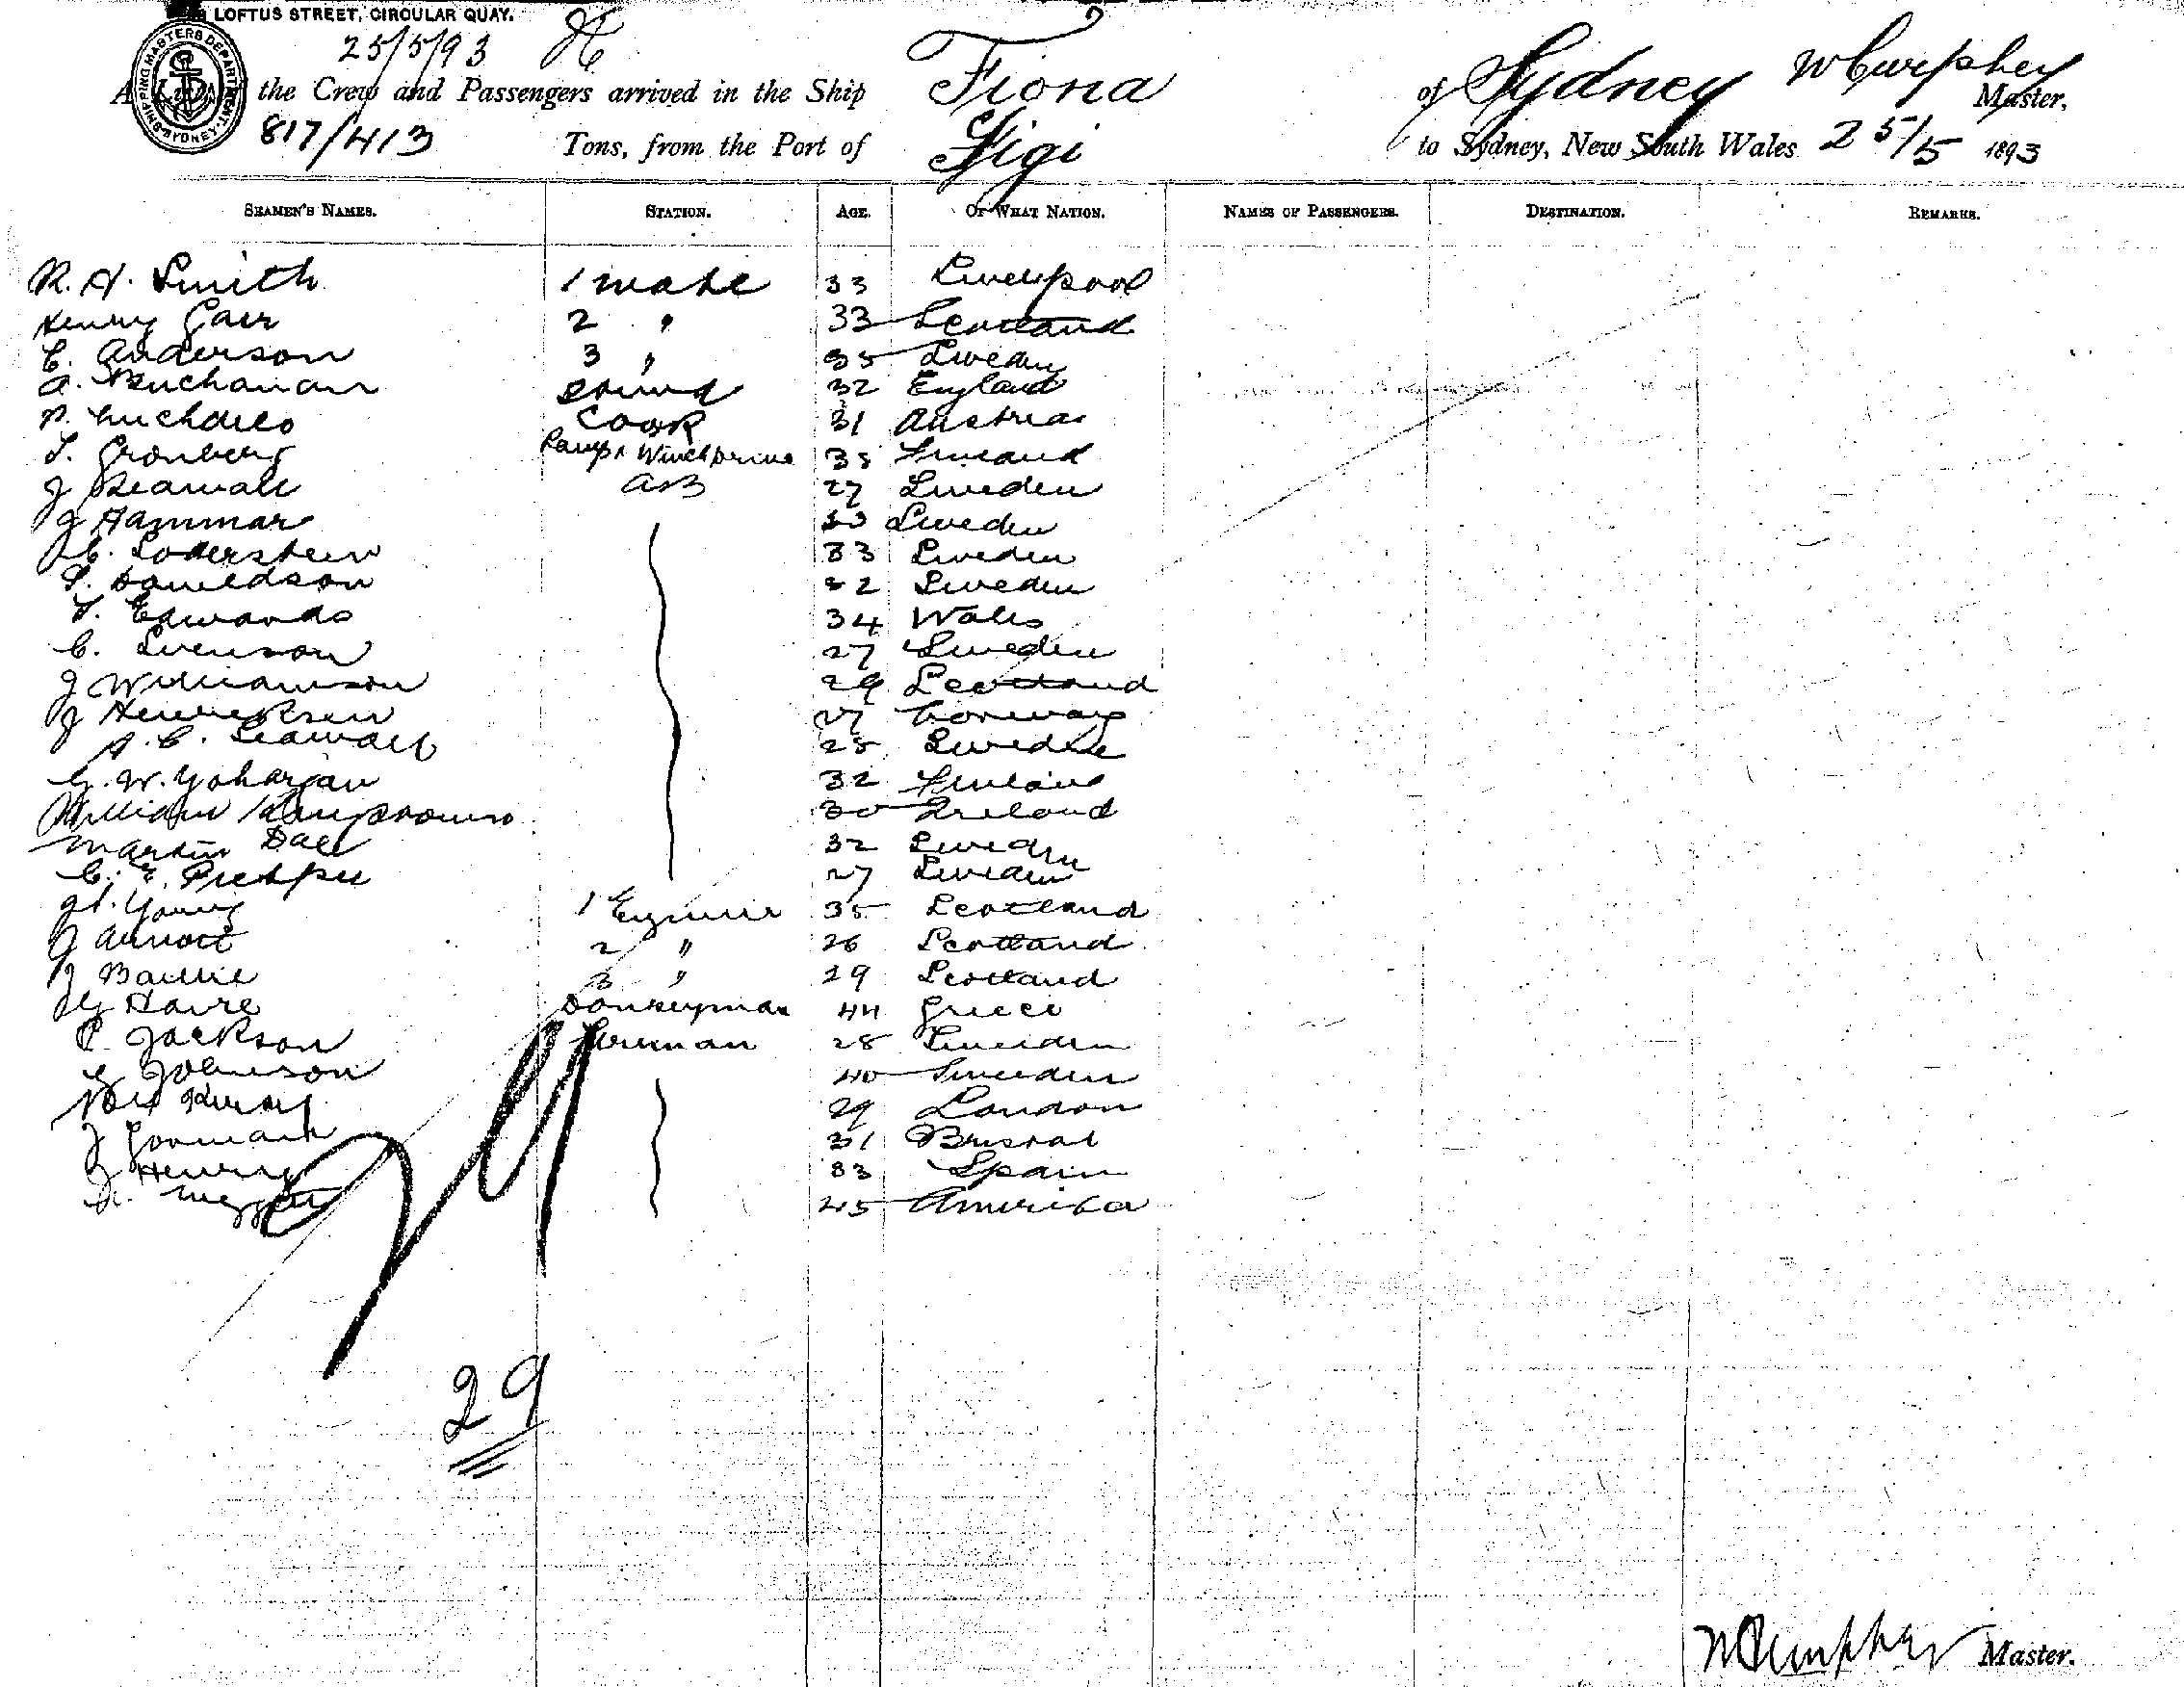 LOFTUS STREET, CIRCULAR QUAY.
25/5/93
SHIPPING MASTERS DEPARTMENT SYDNEY
A List of the Crew and Passengers arrived in the Ship Fiona of Sydney W Cumphey Master,
817/413 Tons, from the Port of Figi to Sydney, New South Wales 25/5 1893
SEAMEN'S NAMES. STATION. AGE. OF WHAT NATION. NAMES OF PASSENGERS. DESTINATION. REMARKS.
R. A. Smith 1 mate 33 Liverpool
Henry Garr 2 " 33 Scotland
C. Anderson 3 " 35 Sweden
A. Buchanan 32 England
P. Cook 31 Austria
Gronberg Lamps & Winch Driver 35 Finland
J AB 27 Sweden
J Hammar 33 Sweden
C. Soderstein 33 Sweden
Danieldson 22 Sweden
T. Edwards 34 Wales
C. Svenson 27 Sweden
J Williamson 29 Scotland
J Henricksen 27 Norway
A. C. 25 Sweden
G. W. Yoharjan 32 Finland
William 30 Ireland
Martin Dall 32 Sweden
C. E. 27 Sweden
Young 1 Engineer 35 Scotland
J Arnott 2 " 26 Scotland
J Baillie 3 " 29 Scotland
Haire Donkeyman 44 Greece
P. Jackson Fireman 28 Sweden
Johnson 40 Sweden
29 London
J Gormach 31 Bristol
J Henry 33 Spain
45 America
29
Master.